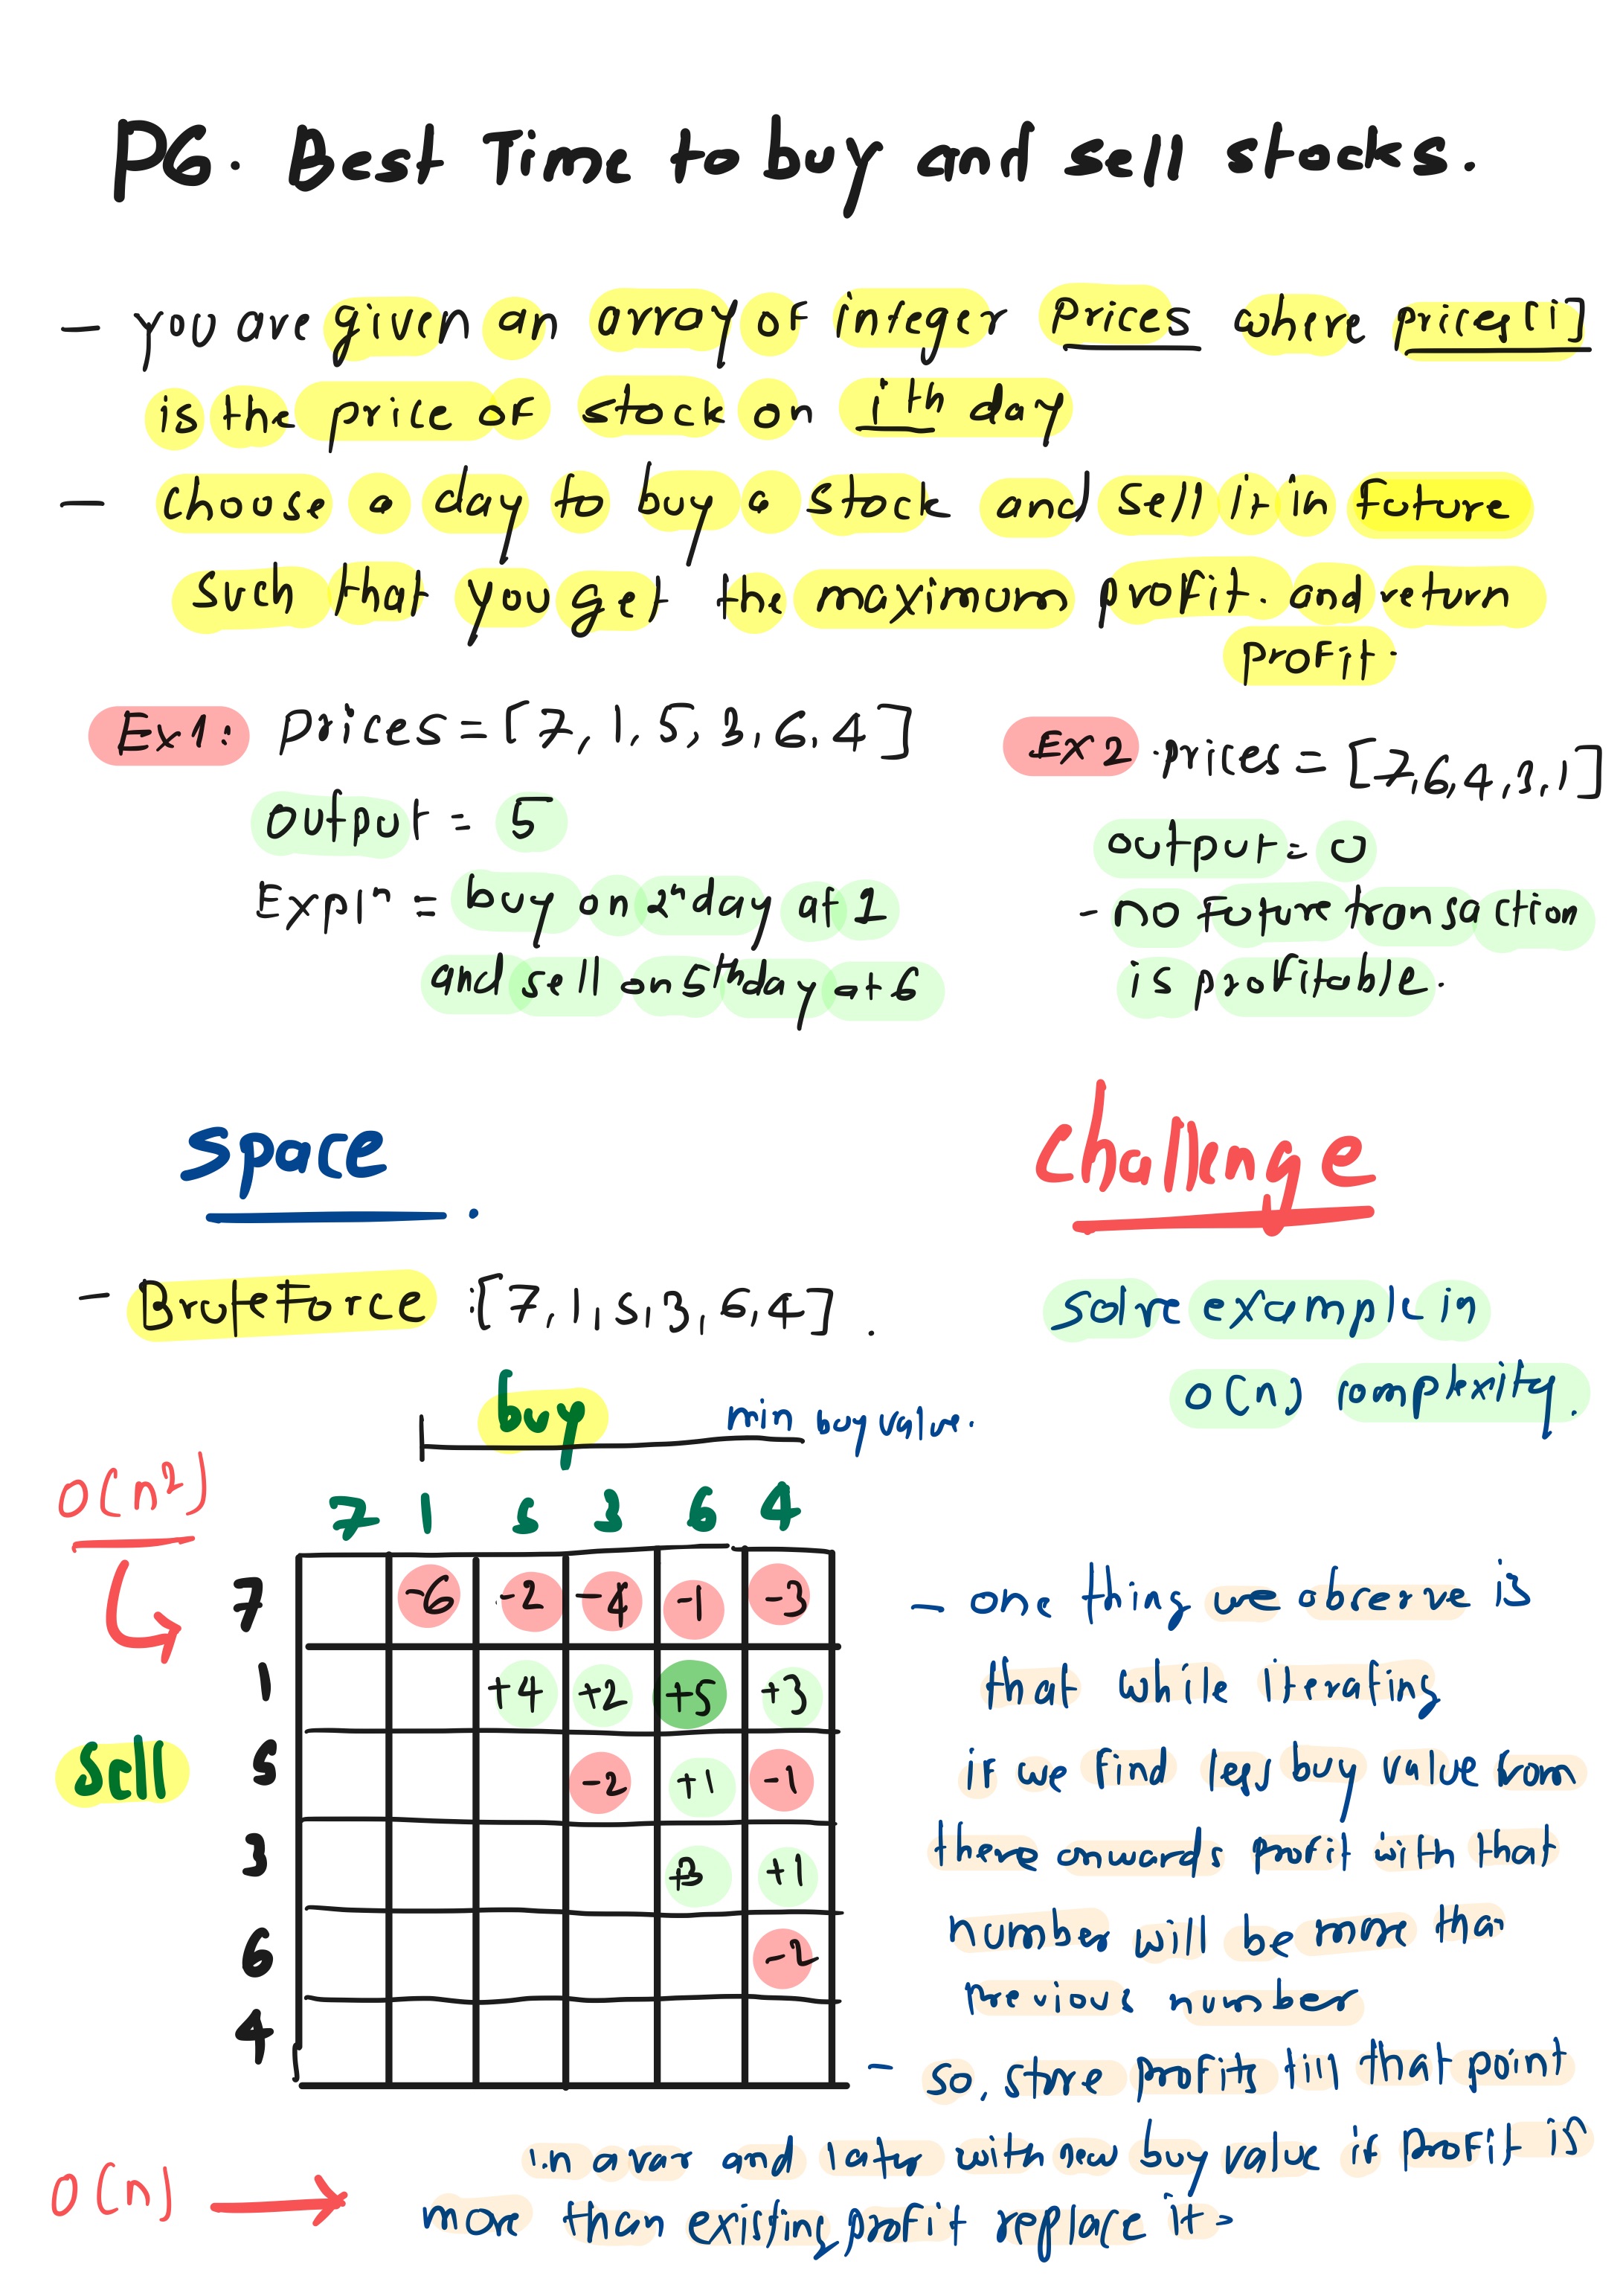 P6. Best Time to buy and sell stocks.
- you are given an array of integer prices where prices[i]
is the price of stock on ith day
- choose a day to buy a stock and sell it in future
such that you get the maximum profit. and return
profit.
Ex1: prices = [7, 1, 5, 3, 6, 4]
output = 5
Expln = buy on 2nday at 1
and sell on 5thday at 6
Ex2 prices = [7,6,4,3,1]
output = 0
- no future transaction
is profitable.
space.
- BruteForce :[7, 1, 5, 3, 6, 4].
challenge
solve example in
O(n) complexity.
buy min buy value.
O(n²)
7 1 5 3 6 4
7 -6 -2 -4 -1 -3
1 +4 +2 +5 +3
sell
5 -2 +1 -1
3 +3 +1
6 -2
4
- one thing we observe is
that while iterating
if we find less buy value from
there onwards profit with that
number will be more than
previous number
- so, store profits till that point
in a var and later with new buy value if profit is
more than existing profit replace it.
O(n)